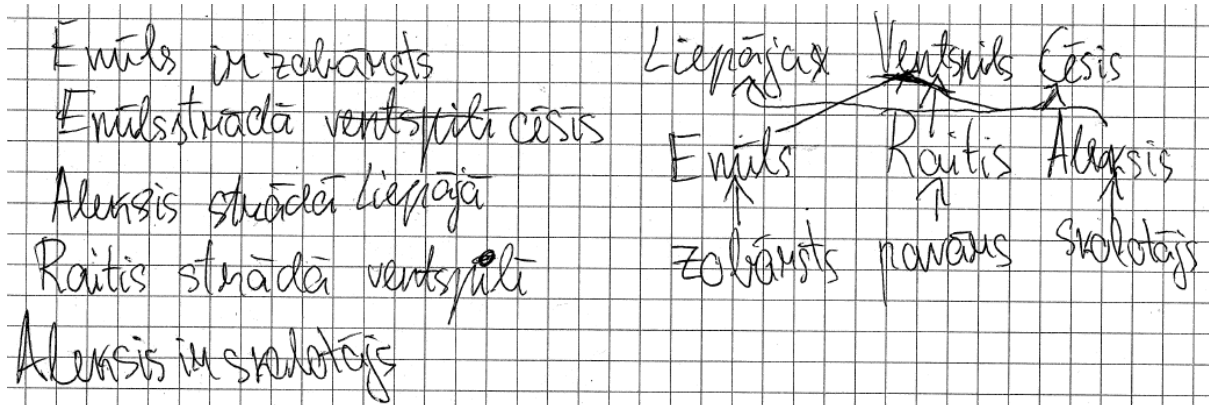 Emīls ir zobārsts
Emīls strādā ventspilī cēsīs
Aleksis strādā Liepājā
Raitis strādā ventspilī
Aleksis ir skolotājs
Liepājas Ventspils Cēsis
Emīls Raitis Aleksis
zobārsts pavārs skolotājs